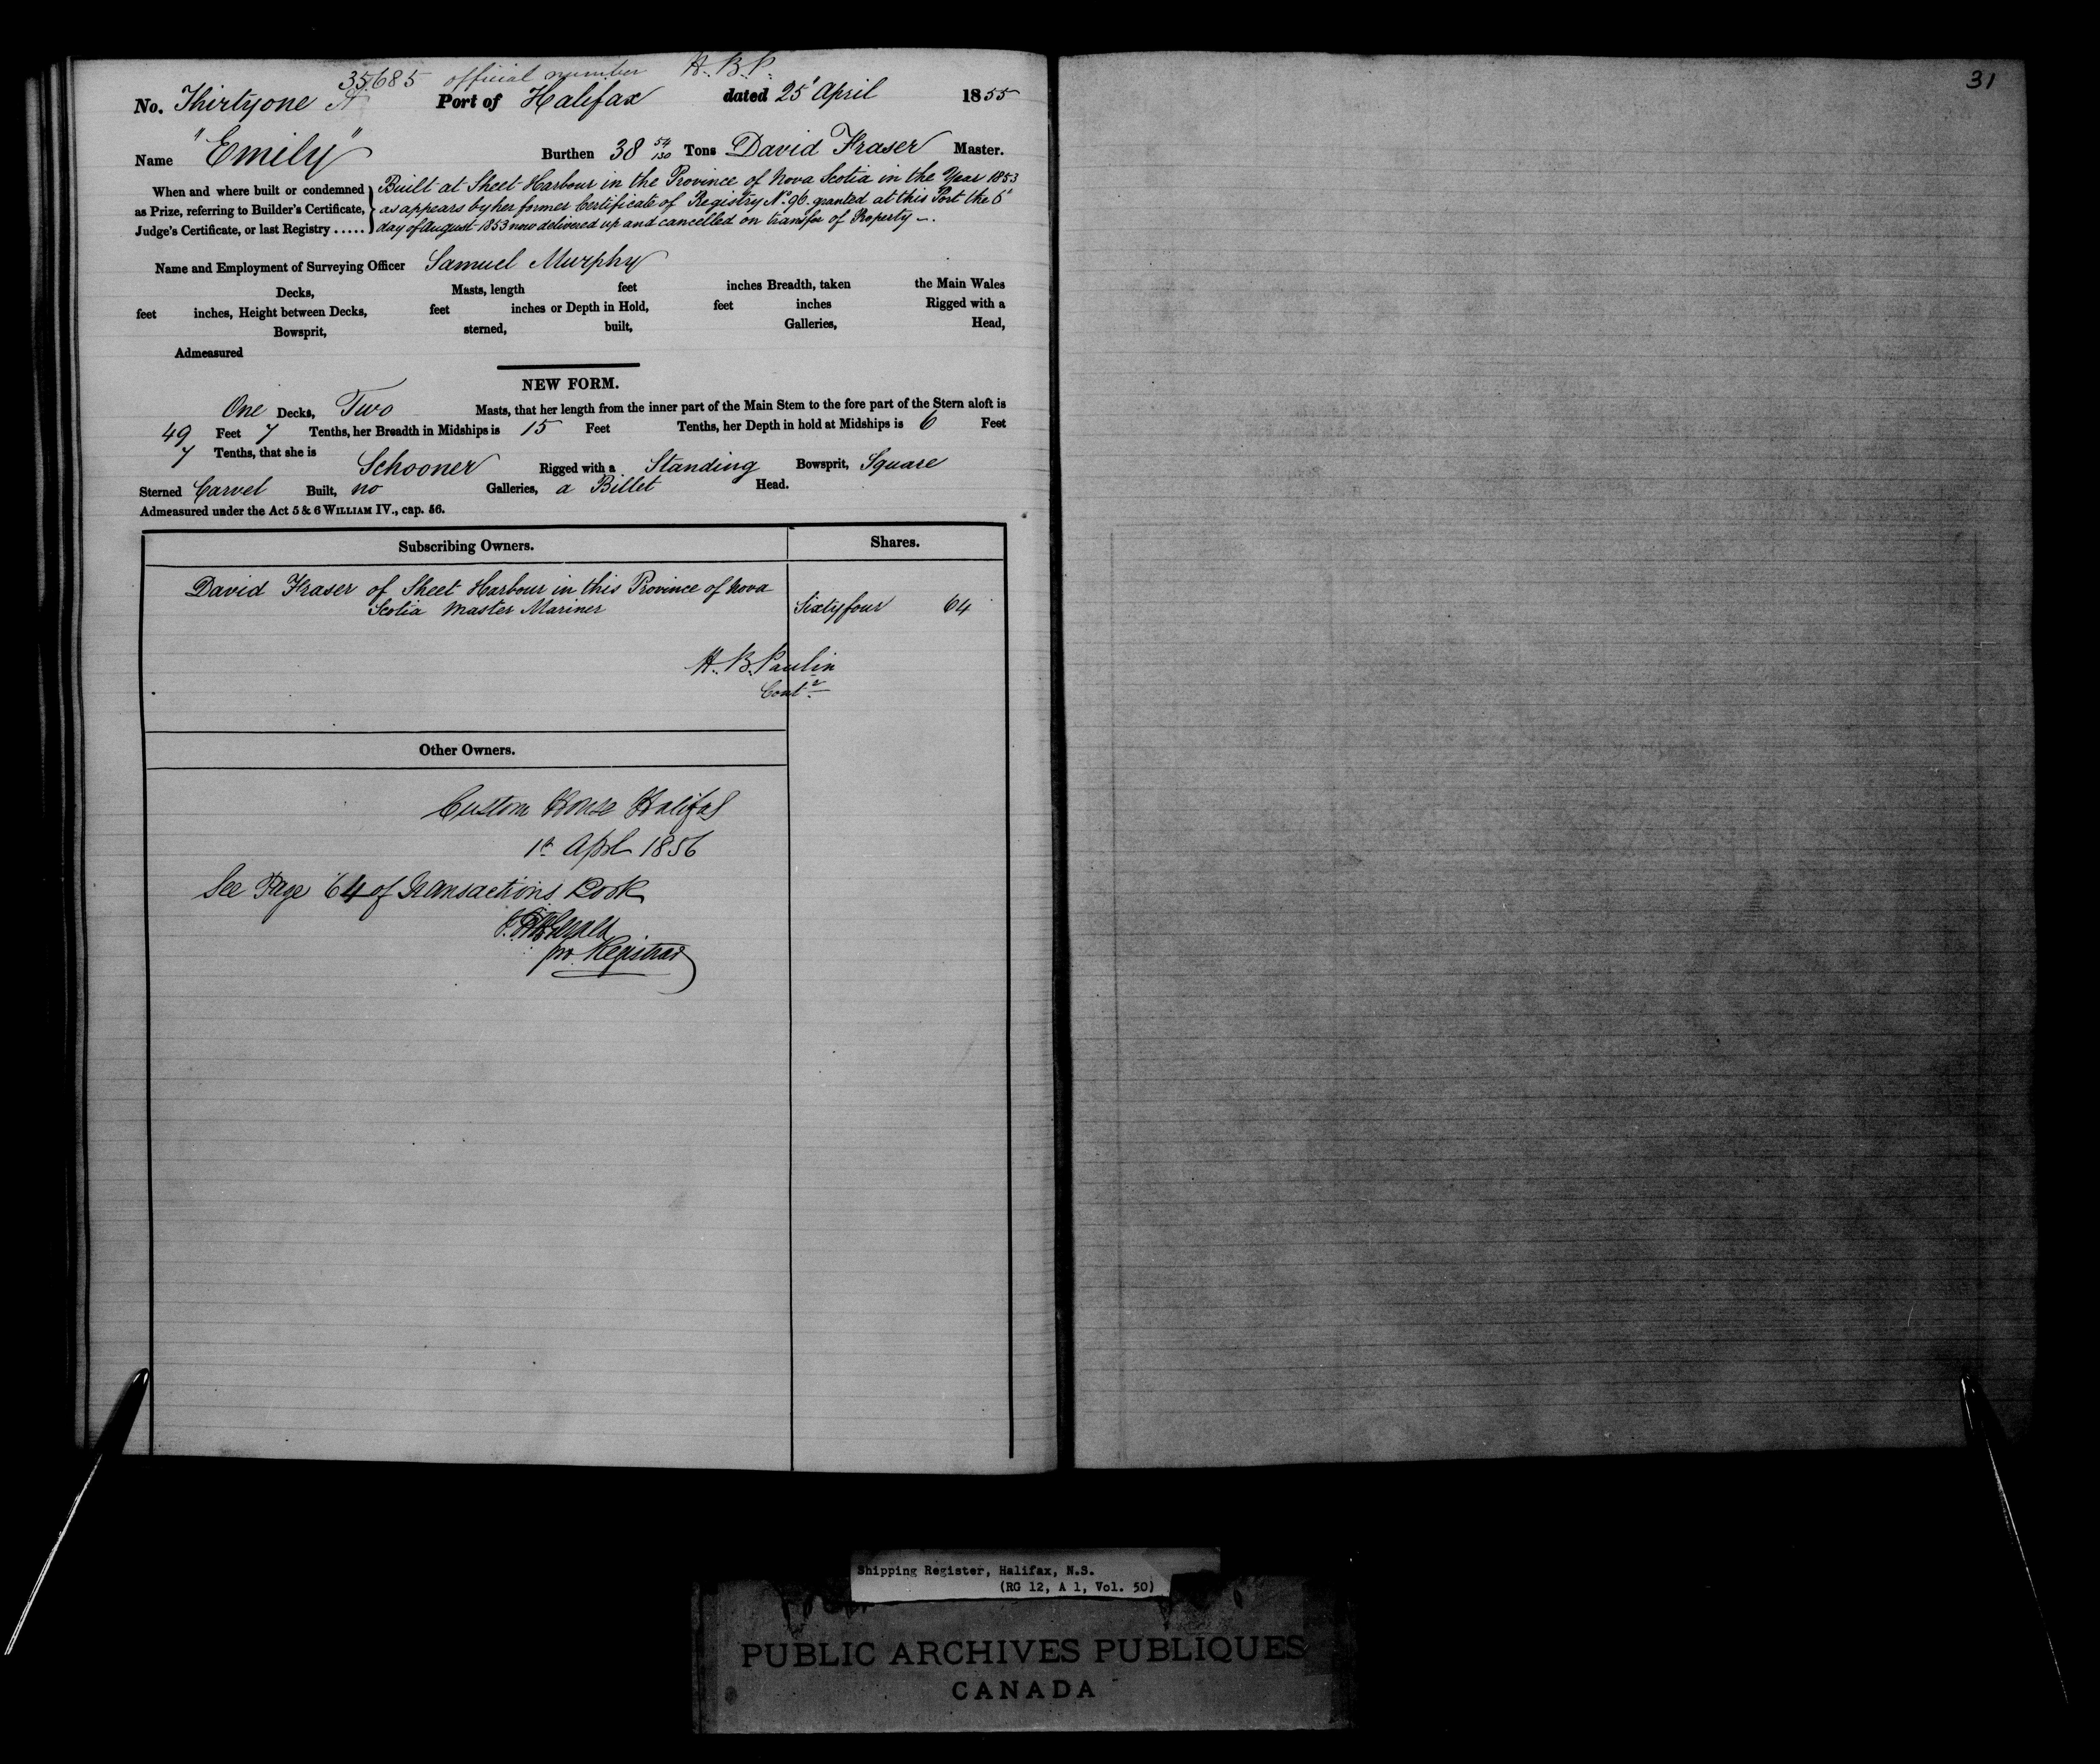 35685 official number H. B. P.
No. Thirtyone A Port of Halifax dated 25 April 1855
Name "Emily" Burthen 38 54/130 Tons David Fraser Master.
When and where built or condemned as Prize, referring to Builder's Certificate, Judge's Certificate, or last Registry .....
Built at Sheet Harbour in the Province of Nova Scotia in the Year 1853
as appears by her former Certificate of Registry No. 96 granted at this Port the 6
day of August 1853 now delivered up and cancelled on transfer of Property
Name and Employment of Surveying Officer Samuel Murphy
Decks, Masts, length feet inches Breadth, taken the Main Wales
feet inches, Height between Decks, feet inches or Depth in Hold, feet inches Rigged with a
Bowsprit, sterned, built, Galleries, Head,
Admeasured
NEW FORM.
One Decks, Two Masts, that her length from the inner part of the Main Stem to the fore part of the Stern aloft is
49 Feet 7 Tenths, her Breadth in Midships is 15 Feet Tenths, her Depth in hold at Midships is 6 Feet
7 Tenths, that she is Schooner Rigged with a Standing Bowsprit, Square
Sterned Carvel Built, no Galleries, a Billet Head.
Admeasured under the Act 5 & 6 WILLIAM IV., cap. 56.
Subscribing Owners. Shares.
David Fraser of Sheet Harbour in this Province of Nova
Scotia Master Mariner Sixtyfour 64
H. B. Paulin
Contr
Other Owners.
Custom House Halifax
1st April 1856
See Page 64 of Transactions Book
pro Registrar
31
Shipping Register, Halifax, N.S.
(RG 12, A 1, Vol. 50)
PUBLIC ARCHIVES PUBLIQUES
CANADA